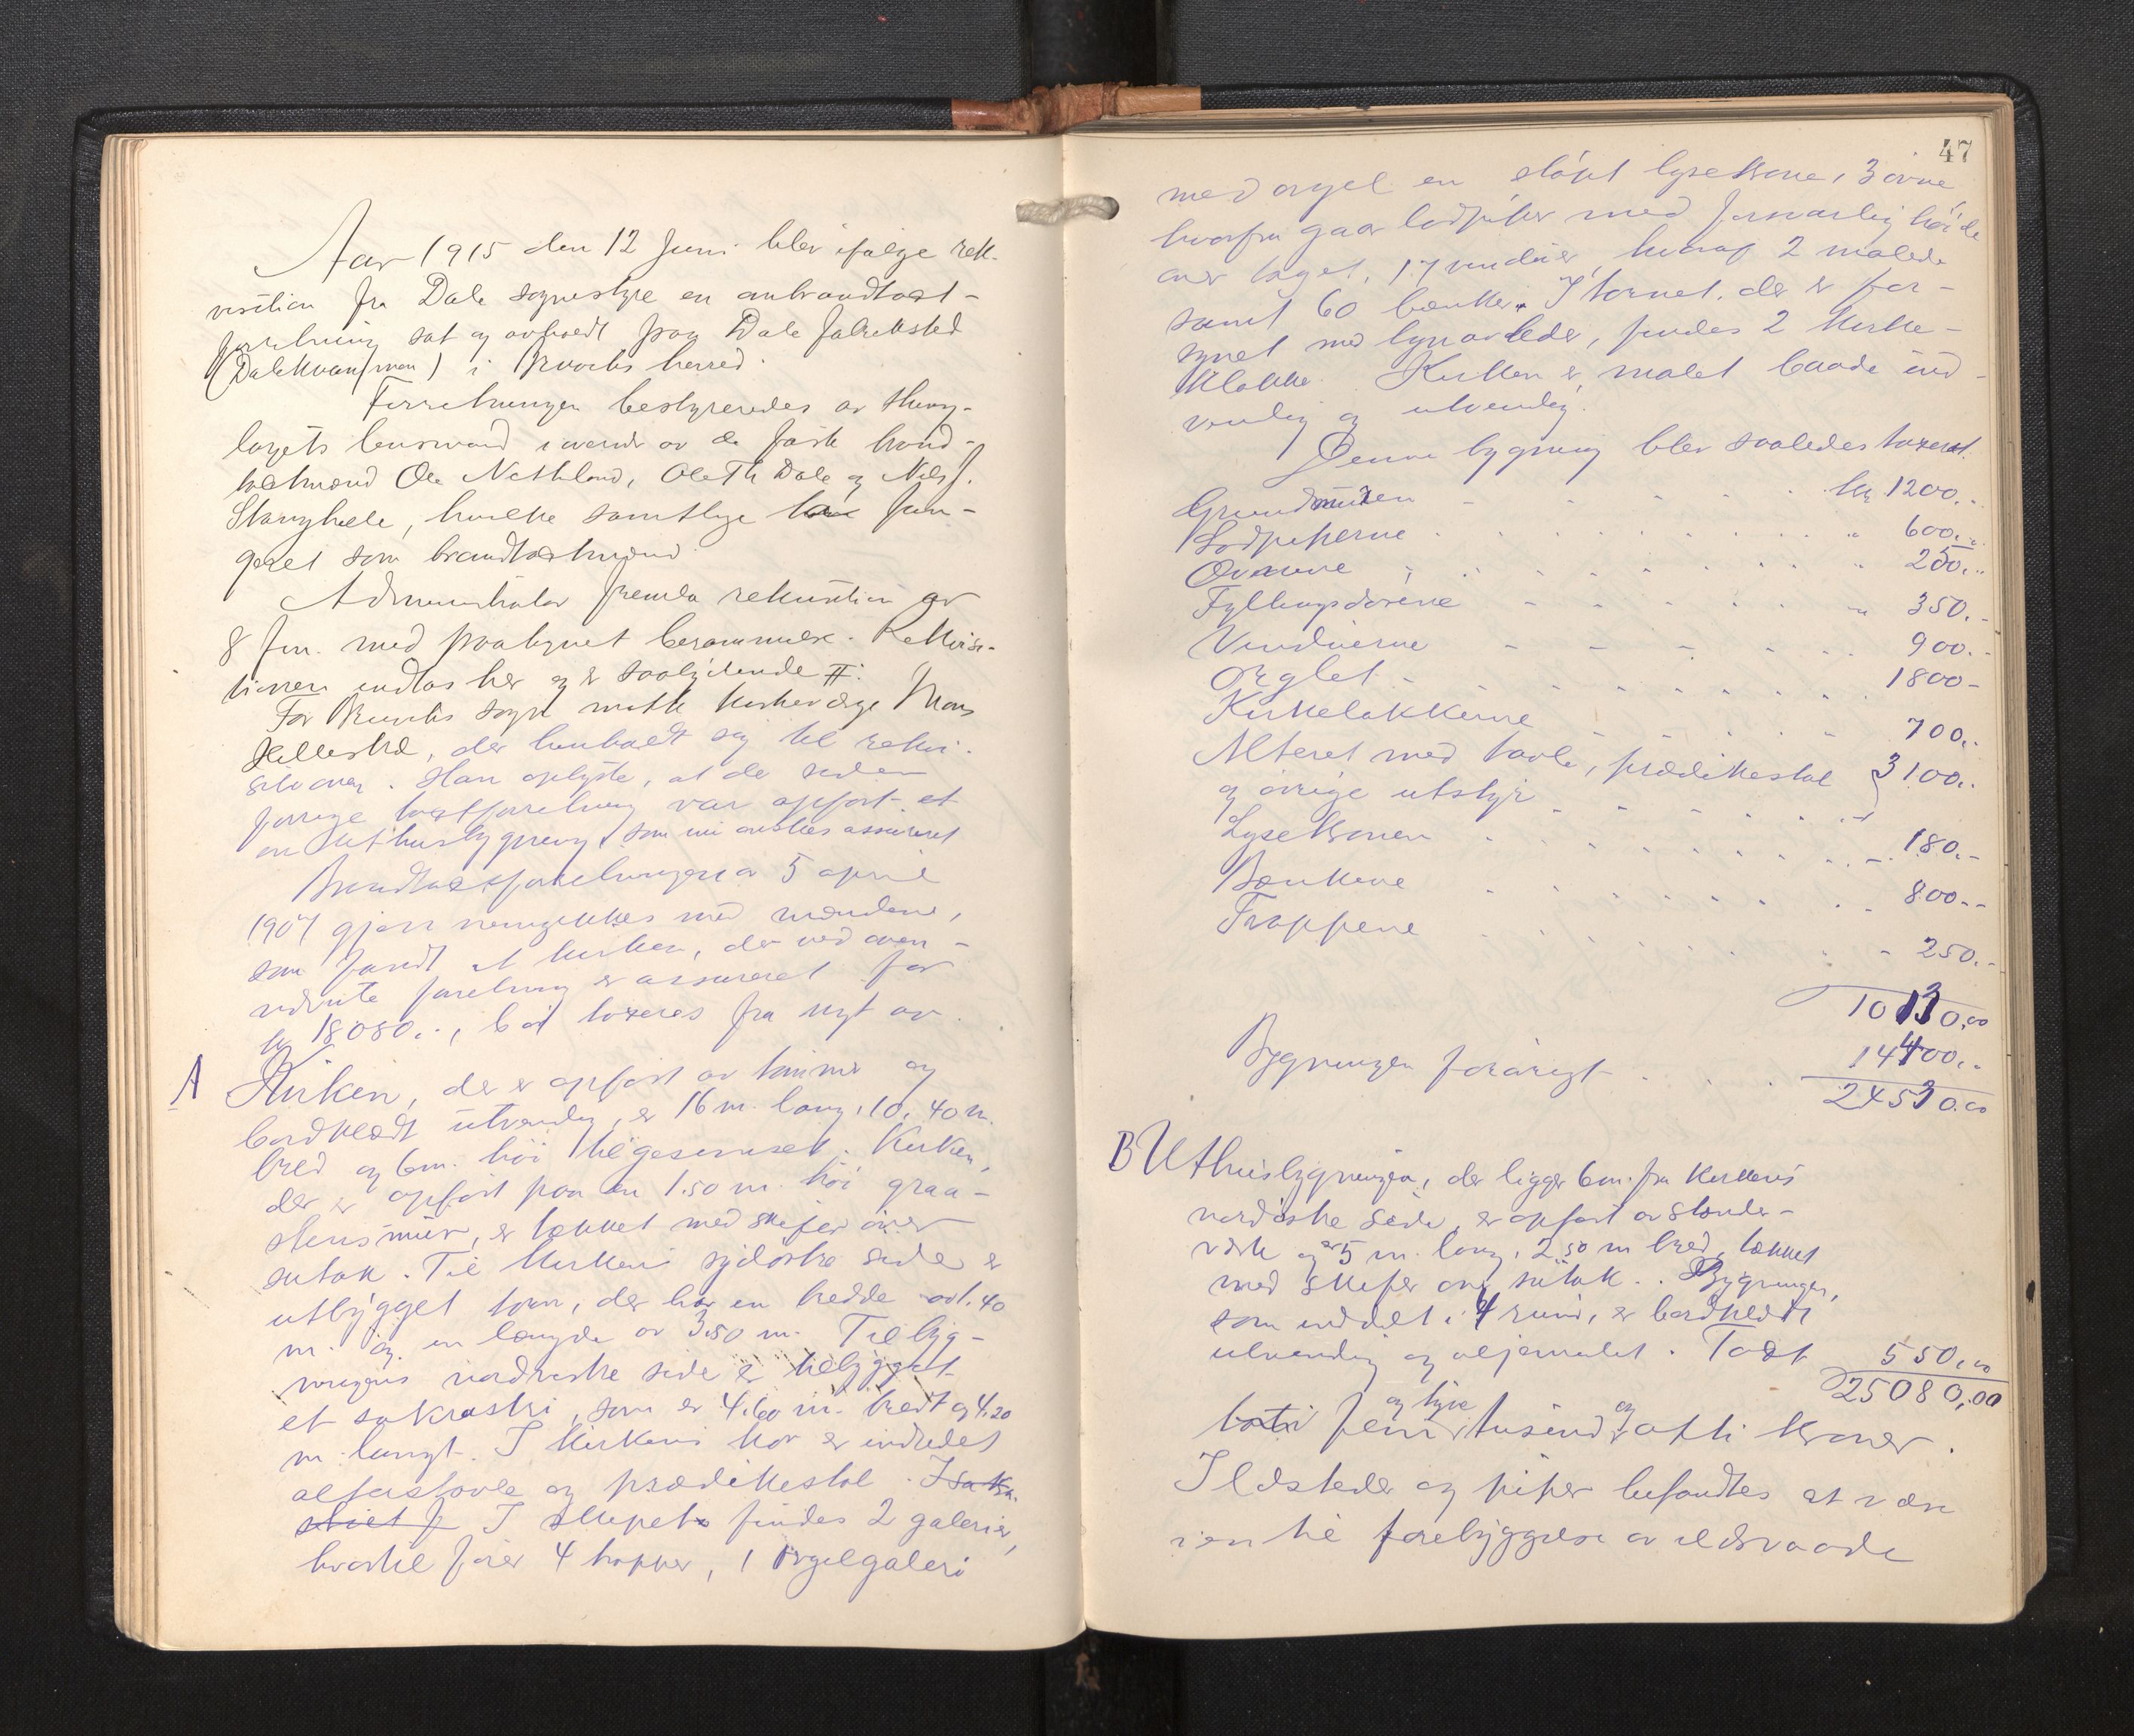 Aar 1915 den 12 Juni blev ifølge rek-
visition fra Dale sognestyre en ombrandtaxt-
forretning sat og avholdt paa Dale fabriksted
(Dalekvam/men) i Bruvik herred.
Forretningen bestyreredes av thing-
lagets lensmand i overvær av de faste brand-
takstmænd Ole Nethland, Ole Th Dale og Nils J.
Stanghelle, hvilke samtlige har fun-
geret som brandtakstmænd.
Administrator fremla rekvisition av
8 Jun. med paategnet berammelse. Rekvisi-
tionen indtas her og er saalydende #:
For Bruviks sogn møtte kirkeverge Mons
Hellestræ, der henholdt sig til rekvi-
sitionen. Han oplyste, at de siden
forrige taxtforretning var opført et
en uthusbygning, som nu ønskes assureret
Brandtaxtforretningen av 5 april
1907 gjennemgikkes med mændene,
som fandt at kirken, der ved oven-
nævnte forretning er assureret for
kr 18080.-, bør taxeres fra nyt av.
A Kirken, der er opført av timmer og
bordklædt utvendig, er 16 m. lang, 10,40 m.
bred og 6m. høi til gesimset. Kirken,
der er opført paa en 1.50 m. høi graa-
stensmur, er tækket med skifer over
sutak. Til kirkens sydøstre side er
utbygget torn, der har en bredde av 1.40
m. og en længde av 3.50 m. Til byg-
ningens nordvestre side er tilbygget
et sakresti, som er 4.60 m. bredt og 4.20
m. langt. I kirkens kor er indredet
altertavle og prædikestol. I sakri-
stiet f I skipet findes 2 galerier,
hvortil fører 4 trapper, 1 orgelgaleri
47
med orgel en støpt lysekrone, 3 ovne
hvorfra gaar lodpiper med forsvarlig høide
over taget. 17 vinduer, hvorav 2 malede
samt 60 bænker. I tornet, der er for-
synet med lynavleder, findes 2 kirke-
klokke. Kirken er malet baade ind-
vendig og utvendig.
Denne bygning blev saaledes taxeret.
Grundmuren - - - - kr 1200.-
Lodpiperne - - - - " 600.-
Ovnene - - - - " 250.-
Fyllingsdørene - - - - " 350.-
Vinduerne - - - - 900.-
Orglet - - - - 1800-
Kirkelokkerne - - - - 700.-
Alteret med tavle, prædikestol } 3100.-
og øvrige utstyr - - - -
Lysekronen - - - - 180.-
Bænkene - - - - 800.-
Trappene - - - - 250.-
10130,00
Bygningen forøvrigt - - - 14400.-
24530.00
B Uthusbygningen, der ligger 6 m. fra kirkens
nordøstre side, er opført av stender-
verk og er 5 m. lang, 2.50 m bred, tækket
med skifer over sutak. Bygningen,
som inddelt i 4 rum, er bordklædt
utvendig og oljemalet. Taxt 550,00
25080,00
taxt fem og tyve tusind og otti kroner.
Ildsteder og piper befandtes at være
i en til forebyggelse av ildsvaade